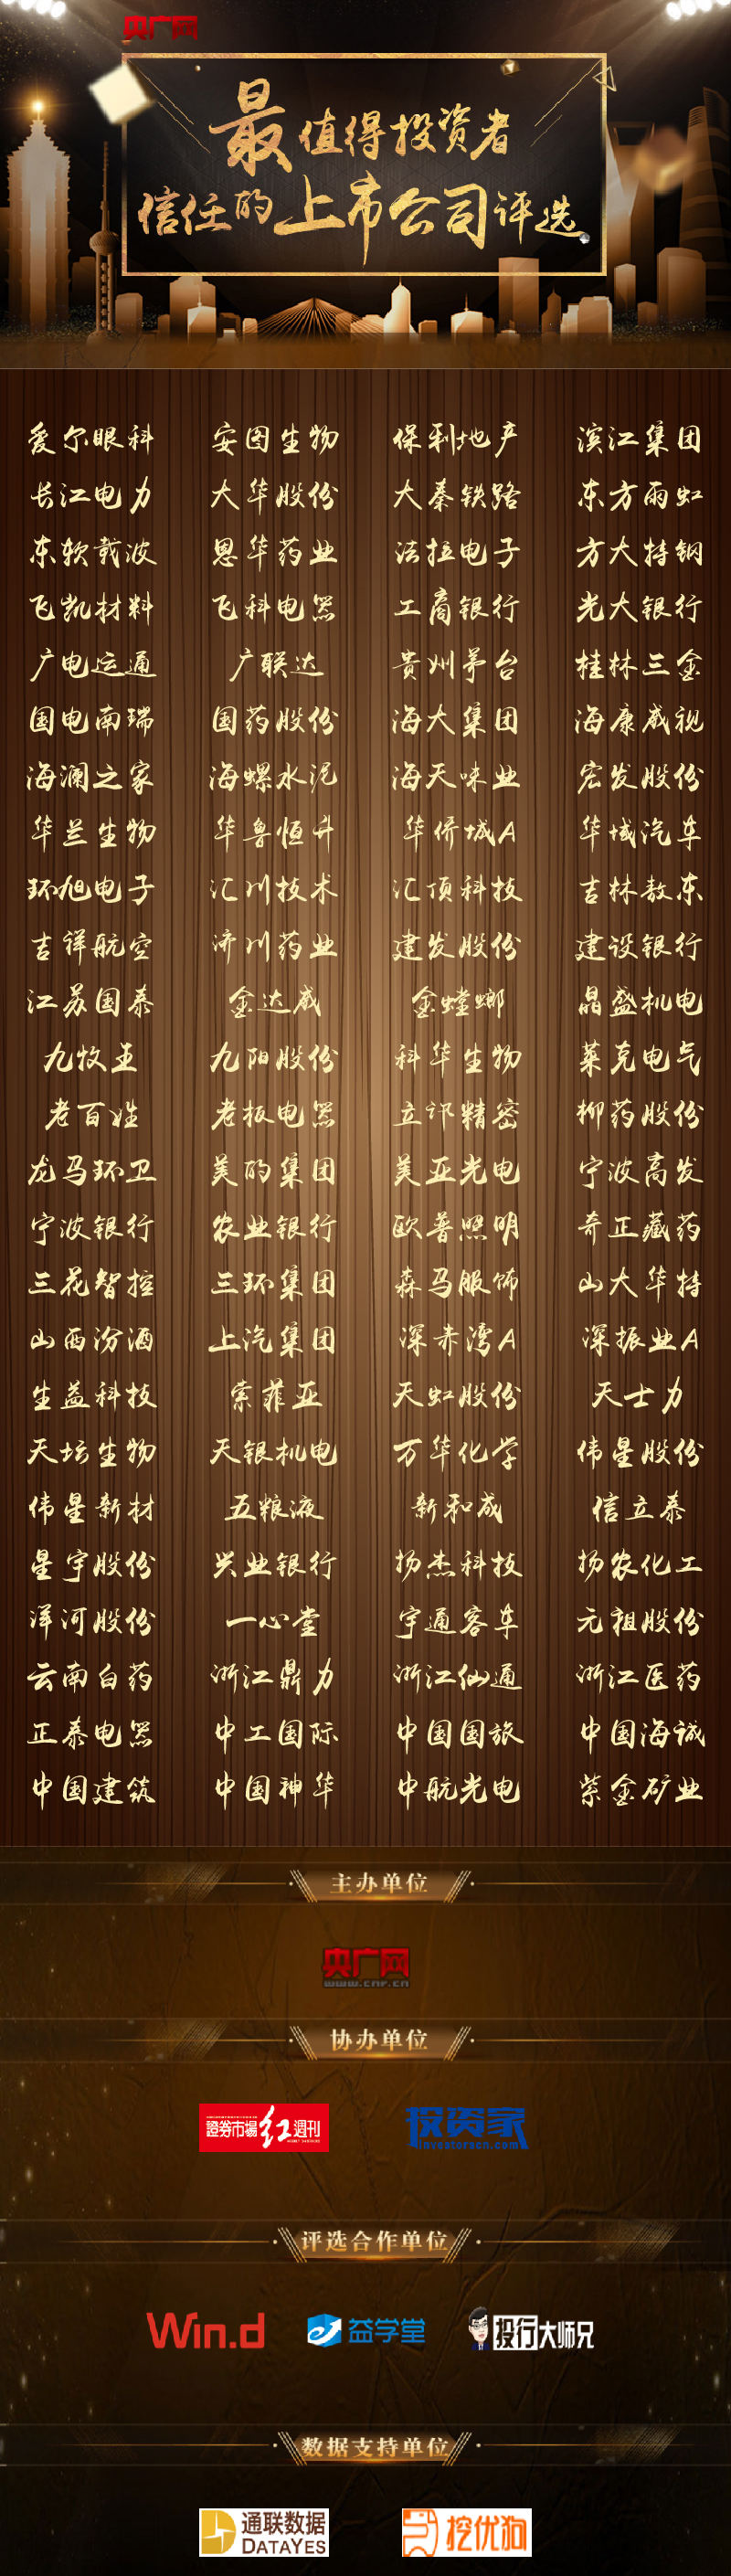 央广网
最值得投资者
信任的上市公司评选
爱尔眼科 安图生物 保利地产 滨江集团
长江电力 大华股份 大秦铁路 东方雨虹
东软载波 恩华药业 法拉电子 方大特钢
飞凯材料 飞科电器 工商银行 光大银行
广电运通 广联达 贵州茅台 桂林三金
国电南瑞 国药股份 海大集团 海康威视
海澜之家 海螺水泥 海天味业 宏发股份
华兰生物 华鲁恒升 华侨城A 华域汽车
环旭电子 汇川技术 汇顶科技 吉林敖东
吉祥航空 济川药业 建发股份 建设银行
江苏国泰 金达威 金螳螂 晶盛机电
九牧王 九阳股份 科华生物 莱克电气
老百姓 老板电器 立讯精密 柳药股份
龙马环卫 美的集团 美亚光电 宁波高发
宁波银行 农业银行 欧普照明 奇正藏药
三花智控 三环集团 森马服饰 山大华特
山西汾酒 上汽集团 深赤湾A 深振业A
生益科技 索菲亚 天虹股份 天士力
天坛生物 天银机电 万华化学 伟星股份
伟星新材 五粮液 新和成 信立泰
星宇股份 兴业银行 扬杰科技 扬农化工
洋河股份 一心堂 宇通客车 元祖股份
云南白药 浙江鼎力 浙江仙通 浙江医药
正泰电器 中工国际 中国国旅 中国海诚
中国建筑 中国神华 中航光电 紫金矿业
主办单位
央广网
www.cnr.cn
协办单位
證券市場红週刊 投资家
investorscn.com
评选合作单位
Win.d 益学堂 投行大师兄
数据支持单位
通联数据 挖优狗
DATAYES